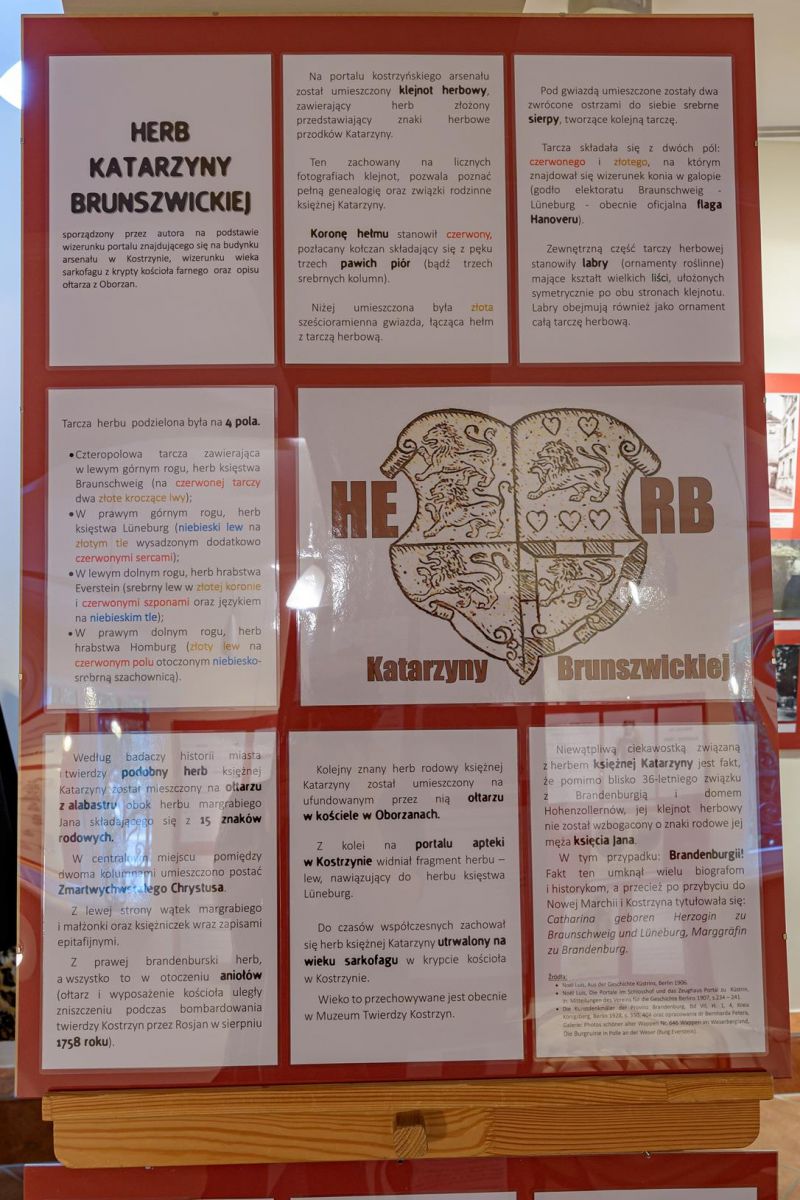 HERB
KATARZYNY
BRUNSZWICKIEJ
sporządzony przez autora na podstawie
wizerunku portalu znajdującego się na budynku
arsenału w Kostrzynie, wizerunku wieka
sarkofagu z krypty kościoła farnego oraz opisu
ołtarza z Oborzan.
Na portalu kostrzyńskiego arsenału
został umieszczony klejnot herbowy,
zawierający herb złożony
przedstawiający znaki herbowe
przodków Katarzyny.
Ten zachowany na licznych
fotografiach klejnot, pozwala poznać
pełną genealogię oraz związki rodzinne
księżnej Katarzyny.
Koronę hełmu stanowił czerwony,
pozłacany kołczan składający się z pęku
trzech pawich piór (bądź trzech
srebrnych kolumn).
Niżej umieszczona była złota
sześcioramienna gwiazda, łącząca hełm
z tarczą herbową.
Pod gwiazdą umieszczone zostały dwa
zwrócone ostrzami do siebie srebrne
sierpy, tworzące kolejną tarczę.
Tarcza składała się z dwóch pól:
czerwonego i złotego, na którym
znajdował się wizerunek konia w galopie
(godło elektoratu Braunschweig -
Lüneburg - obecnie oficjalna flaga
Hanoveru).
Zewnętrzną część tarczy herbowej
stanowiły labry (ornamenty roślinne)
mające kształt wielkich liści, ułożonych
symetrycznie po obu stronach klejnotu.
Labry obejmują również jako ornament
całą tarczę herbową.
Tarcza herbu podzielona była na 4 pola.
•Czteropolowa tarcza zawierająca
w lewym górnym rogu, herb księstwa
Braunschweig (na czerwonej tarczy
dwa złote kroczące lwy);
•W prawym górnym rogu, herb
księstwa Lüneburg (niebieski lew na
złotym tle wysadzonym dodatkowo
czerwonymi sercami);
•W lewym dolnym rogu, herb hrabstwa
Everstein (srebrny lew w złotej koronie
i czerwonymi szponami oraz językiem
na niebieskim tle);
•W prawym dolnym rogu, herb
hrabstwa Homburg (złoty lew na
czerwonym polu otoczonym niebiesko-
srebrną szachownicą).
HE RB
Katarzyny Brunszwickiej
Według badaczy historii miasta
i twierdzy podobny herb księżnej
Katarzyny został mieszczony na ołtarzu
z alabastru obok herbu margrabiego
Jana składającego się z 15 znaków
rodowych.
W centralnym miejscu pomiędzy
dwoma kolumnami umieszczono postać
Zmartwychwstałego Chrystusa.
Z lewej strony wątek margrabiego
i małżonki oraz księżniczek wraz zapisami
epitafijnymi.
Z prawej brandenburski herb,
a wszystko to w otoczeniu aniołów
(ołtarz i wyposażenie kościoła uległy
zniszczeniu podczas bombardowania
twierdzy Kostrzyn przez Rosjan w sierpniu
1758 roku).
Kolejny znany herb rodowy księżnej
Katarzyny został umieszczony na
ufundowanym przez nią ołtarzu
w kościele w Oborzanach.
Z kolei na portalu apteki
w Kostrzynie widniał fragment herbu –
lew, nawiązujący do herbu księstwa
Lüneburg.
Do czasów współczesnych zachował
się herb księżnej Katarzyny utrwalony na
wieku sarkofagu w krypcie kościoła
w Kostrzynie.
Wieko to przechowywane jest obecnie
w Muzeum Twierdzy Kostrzyn.
Niewątpliwą ciekawostką związaną
z herbem księżnej Katarzyny jest fakt,
że pomimo blisko 36-letniego związku
z Brandenburgią i domem
Hohenzollernów, jej klejnot herbowy
nie został wzbogacony o znaki rodowe jej
męża księcia Jana.
W tym przypadku: Brandenburgii!
Fakt ten umknął wielu biografom
i historykom, a przecież po przybyciu do
Nowej Marchii i Kostrzyna tytułowała się:
Catharina geboren Herzogin zu
Braunschweig und Lüneburg, Marggräfin
zu Brandenburg.
Źródła:
• Noël Luis, Aus der Geschichte Küstrins, Berlin 1906.
• Noël Luis, Die Portale im Schloshof und das Zeughaus Portal zu Küstrin,
in: Mitteilungen des Vereins für die Geschichte Berlins 1907, s.234 – 241.
• Die Kunstdenkmäler der Provinz Brandenburg, Bd VII, H. 1, 4, Kreis
Königsberg, Berlin 1928, s. 350, 404 oraz opracowania dr Bernharda Petera,
Galerie: Photos schöner alter Wappen Nr. 646 Wappen am Weserbergland,
Die Burgruine in Polle an der Weser (Burg Everstein).